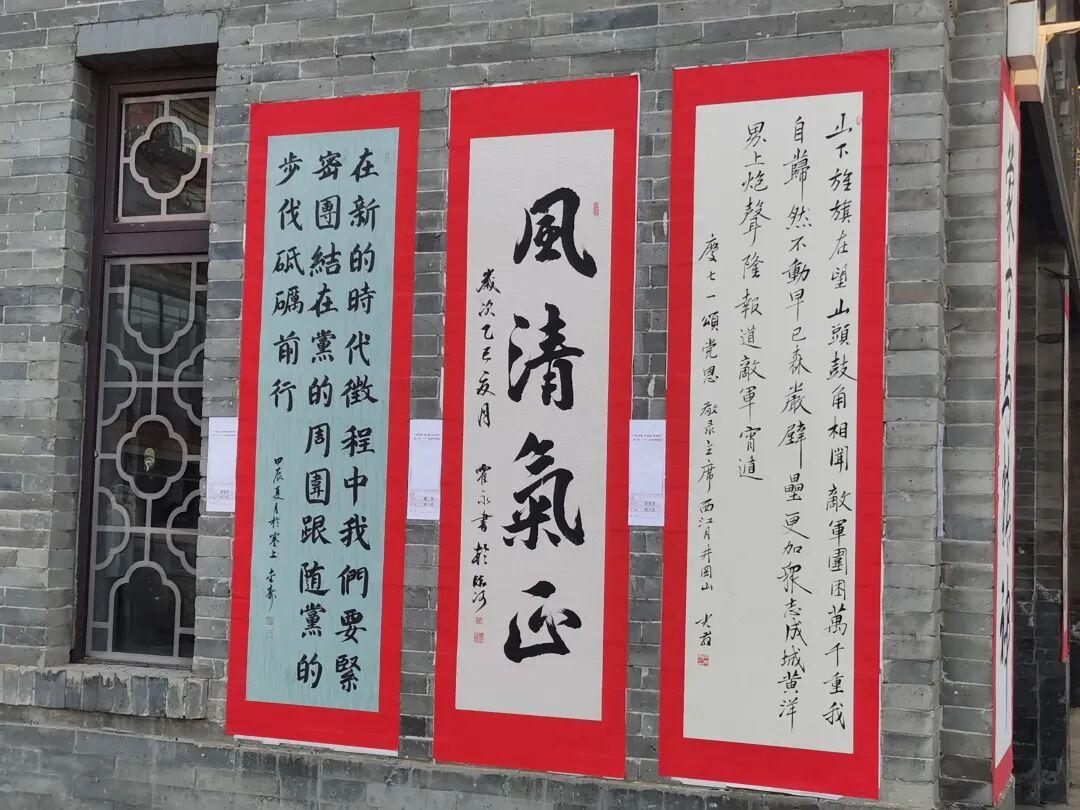 在新的時代徵程中我們要緊
密團結在黨的周圍跟随黨的
步伐砥礪前行
甲辰夏月於
風清氣正
嵗次乙巳夏月 霍永書於
山下旌旗在望山頭鼓角相聞敵軍圍困萬千重我
自歸然不動早已森嚴壁壘更加衆志成城黄洋
界上炮聲隆報道敵軍宵遁
慶七一頌党恩 敬录主席西江月井岡山